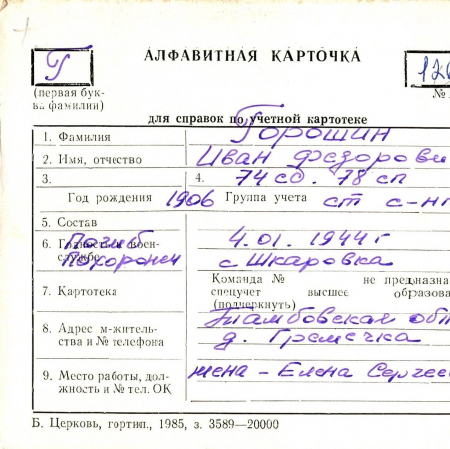 АЛФАВИТНАЯ КАРТОЧКА
Г
126
(первая бук-
ва фамилии)
№
для справок по учетной картотеке
1. Фамилия Горошин
2. Имя, отчество Иван Федорови
3. 4. 74 сд. 78 сп
Год рождения 1906 Группа учета ст с-нт
5. Состав
6. Годность к воен-
службе
Погиб 4.01.1944 г
Похоронен с Шкаровка
7. Картотека
Команда № не предназна
спецучет высшее образова
(подчеркнуть)
8. Адрес м-житель-
ства и № телефона
Тамбовская обл
д. Гремячка
9. Место работы, дол-
жность и № тел. ОК
жена - Елена Сергее
Б. Церковь, гортип., 1985, з. 3589—20000